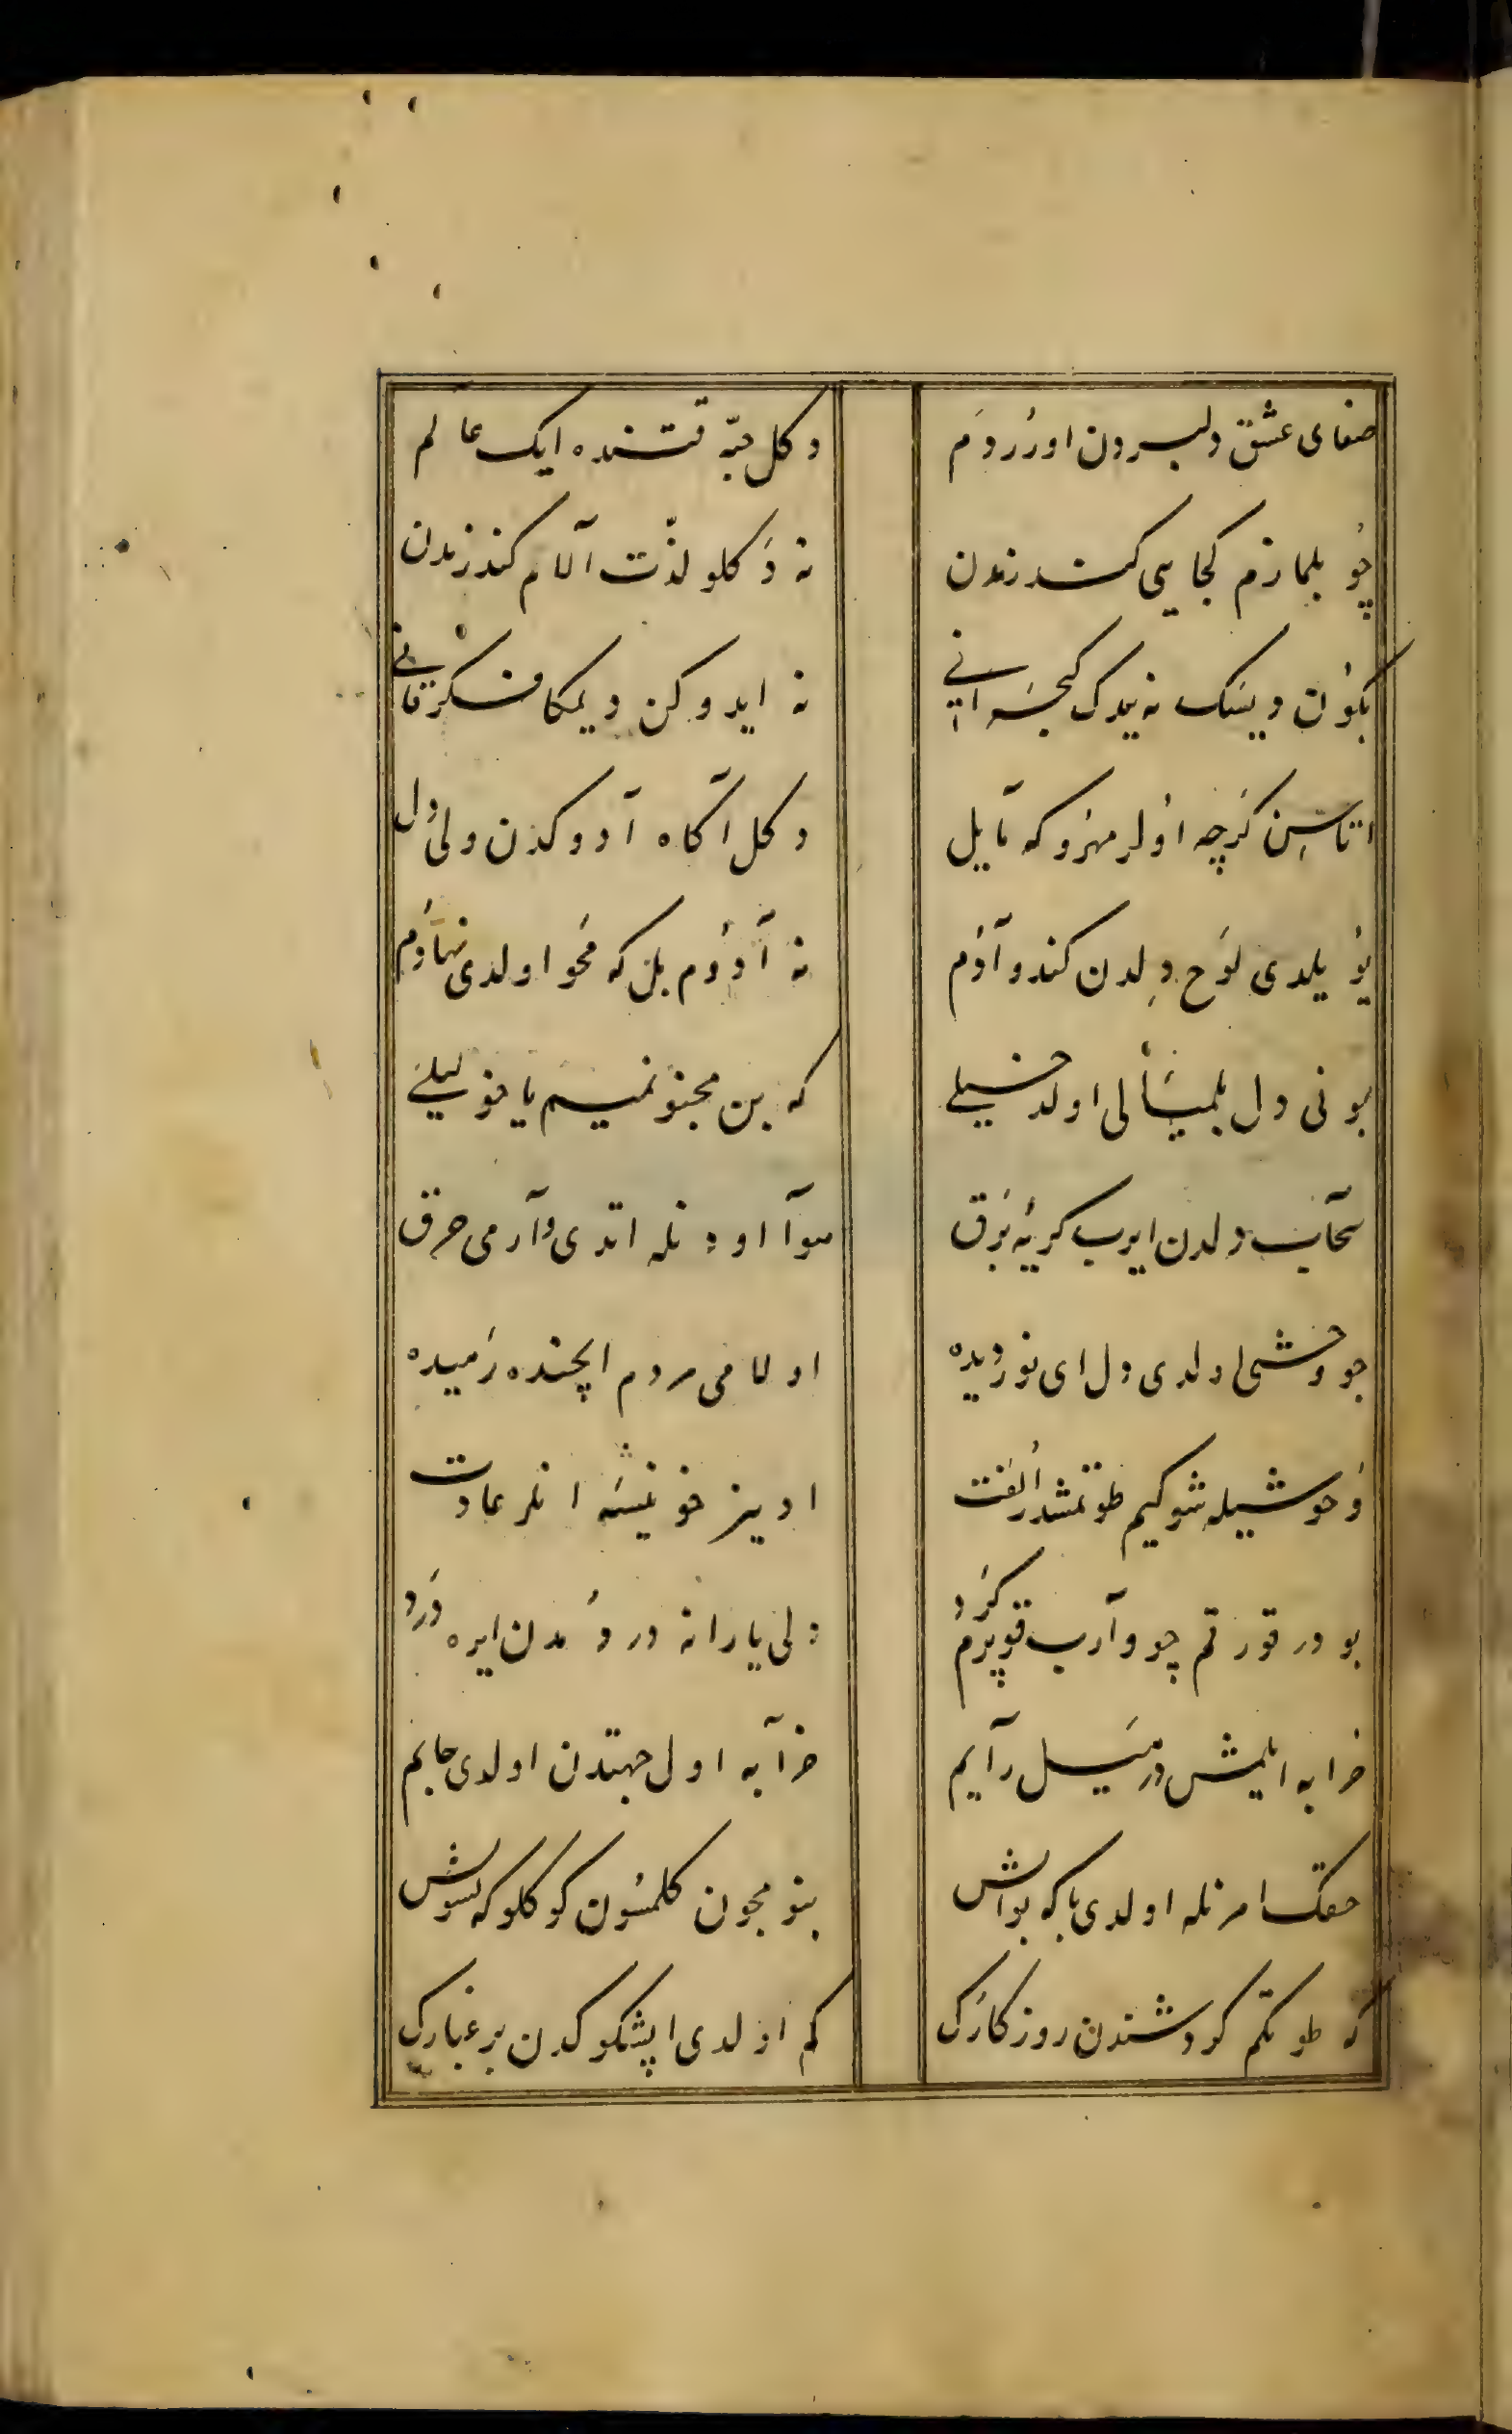 صفای عشق دلبردن اورردم دکل حبّه قتنده ایکی عالم
چو بلمازم کجایی کندزمدن نه دکلو لذّت آلام کندزمدن
بکون دیسک نه یدک کیجه انی نه ایدوکن دیمکا فکر قانی
اتاسن کرچه اولر مهروکه مایل دکل آکاه آدوکدن ولی دل
یویلدی لوح دلدن کندو آدم نه آدوم بل که محو اولدی نهادم
بونی دل بلمیشالی اولد خیلی که بن مجنونمیم یا خو لیلی
سحاب دلدن ایرب کریه برق سوآ اودنله اتدی وآرمی حرق
چو وحشی اولدی دل ای نور دیده اولامی مردم ایچنده رمیده
وحوشیله شوکیم طوتمشدر الفت ادینز خو نیشه انلر عادت
بو در قورقم چو وآرب قوپرم کرد دلی یارانه دردمدن ایره درد
خرابه ایلمیشدر میل رآیم خرآبه اول جهتدن اولدی جایم
حقک امرنله اولدی باکه بو اش بنومچون کلمسون کوکلوکه تشویش
که طوتکم کردشندن روزکارک کم اولدی اپشکوکدن بر غبارک